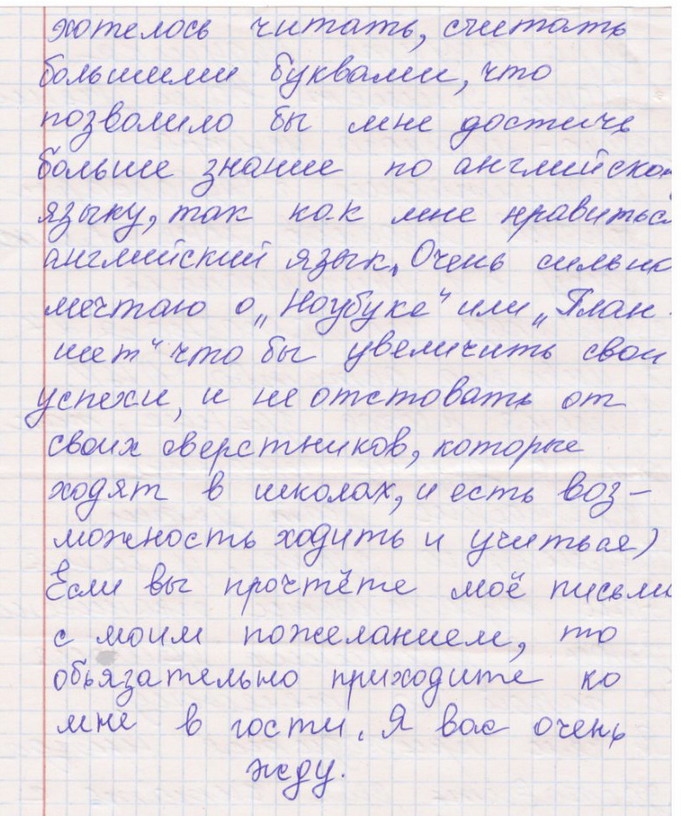 хотелось читать, считать
большими буквами, что
позволило бы мне достичь
больше знание по английско
языку, так как мне нравиться
английский язык. Очень сильно
мечтаю о „Ноубуке" или „План-
шет" что бы увеличить свои
успехи, и не отстовать от
своих сверстников, которые
ходят в школах, и есть воз-
можность ходить и учиться)
Если вы прочтёте моё письмо
с моим пожеланием, то
обьязательно приходите ко
мне в гости. Я вас очень
жду.